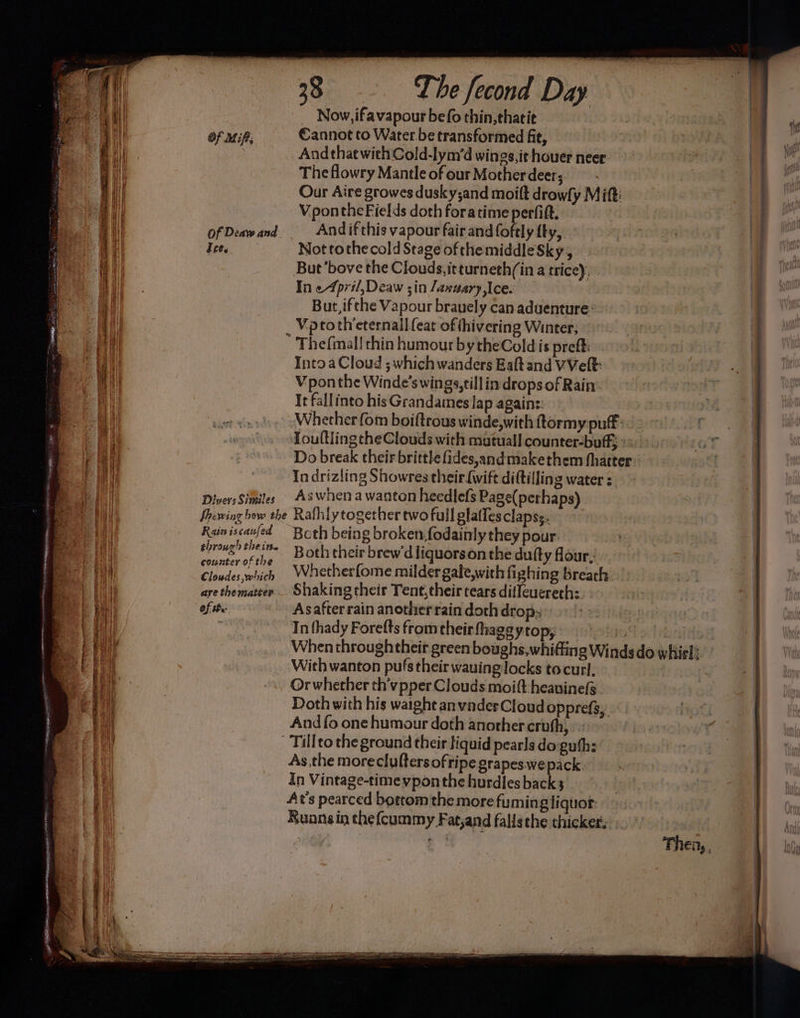 38 The ſecond Day
Now, if a vapour be ſo thin, that it
Of Miſt,
Cannot to Water be transformed fit,
And that with Cold-lym'd wings, it houer neer
The flowry Mantle of our Mother deer;
Our Aire growes dusky, and moiſt drowſy Miſt
Vpon the Fields doth for a time perſiſt.
Of Deaw and
And if this vapour fair and ſoftly ſty,
Ice.
Not to the cold Stage of the middle Sky,
But 'bove the Clouds, it turneth (in a trice)
In April, Deaw; in Ianuary, Ice.
But, if the Vapour brauely can aduenture
Vp to th'eternall ſeat of ſhivering Winter,
The ſmall thin humour by the Cold is preſt
Into a Cloud; which wanders Eaſt and VVeſt
Vpon the Winde's wings, till in drops of Rain
It fall into his Grandames lap again:
Whether ſom boiſtrous winde, with ſtormy puff
Iouſtling the Clouds with mutuall counter-buff,
Do break their brittle ſides, and make them ſhatter
In drizling Showres their ſwift diſtilling water:
Divers Similes
As when a wanton heedleſs Page (perhaps)
ſhewing how the
Raſhly together two full glaſſes claps;
Rain is cauſed
Both being broken, ſodainly they pour
through the in-
Both their brew'd liquors on the duſty flour,
counter of the
Cloudes, which
Whether ſome milder gale, with ſighing breath
are the matter
Shaking their Tent, their tears diſſeuereth:
of it
As after rain another rain doth drop,
In ſhady Foreſts from their ſhaggy top,
When through their green boughs, whiffing Winds do whirl;
With wanton pufs their wauing locks to curl.
Or whether th'vpper Clouds moiſt heauineſs
Doth with his waight an vnder Cloud oppreſs,
And ſo one humour doth another cruſh,
Till to the ground their liquid pearls do guſh:
As, the more cluſters of ripe grapes we pack
In Vintage-time vpon the hurdles back;
At's pearced bottom the more fuming liquor
Runns in the ſcummy Fat, and falls the thicker.
Then,